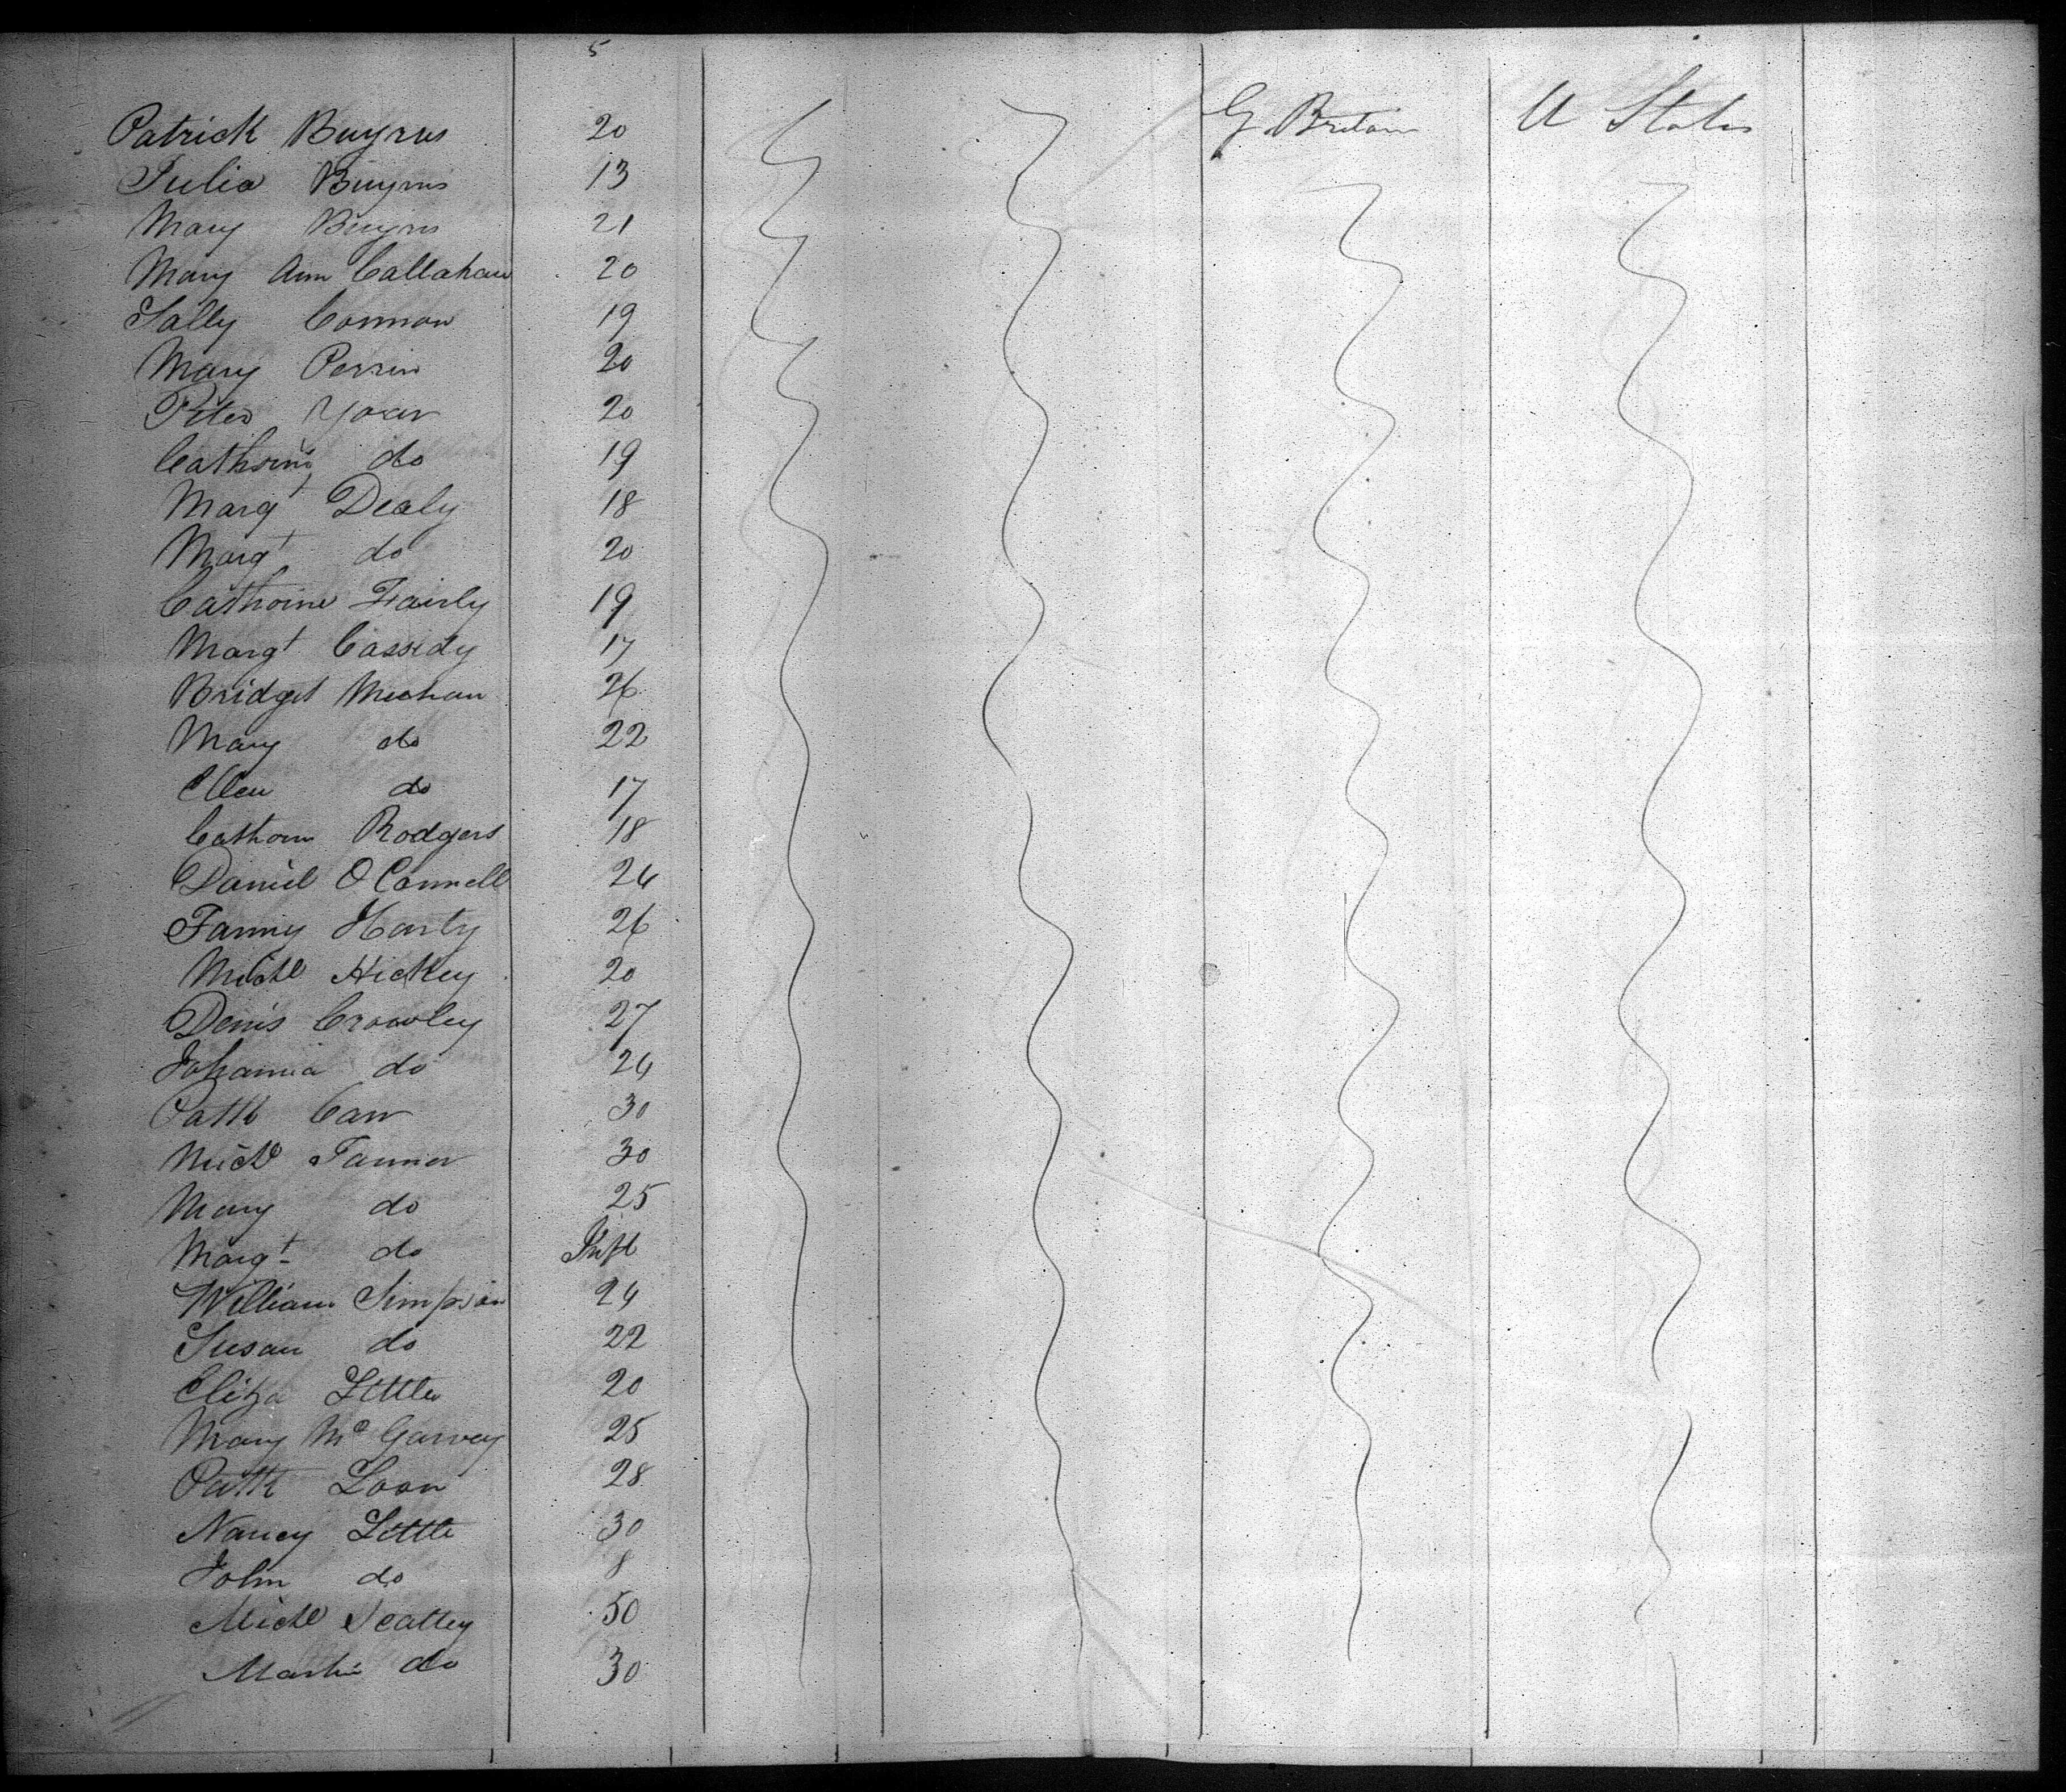 5
Patrick Buyrns 20 G. Britain U States
Julia Buyrns 13
Mary Buyrns 21
Mary Ann Callahan 20
Sally Connon 19
Mary Perrin 20
Peter Yoxer 20
Cathrine do 19
Margt Dealy 18
Margt do 20
Cathrine Fairly 19
Margt Cassidy 17
Bridget Meehan 26
Mary do 22
Ellen do 17
Cathrin Rodgers 18
Daniel O Connell 24
Fanny Harty 26
Michl Hickey 20
Denis Crowley 27
Johanna do 24
Patk Carr 30
Michl Tanner 30
Mary do 25
Margt do Inft
William Simpson 24
Susan do 22
Eliza Little 20
Mary Mc Garvey 25
Patk Loon 28
Nancy Little 30
John do 8
Michl Scattey 50
Martin do 30